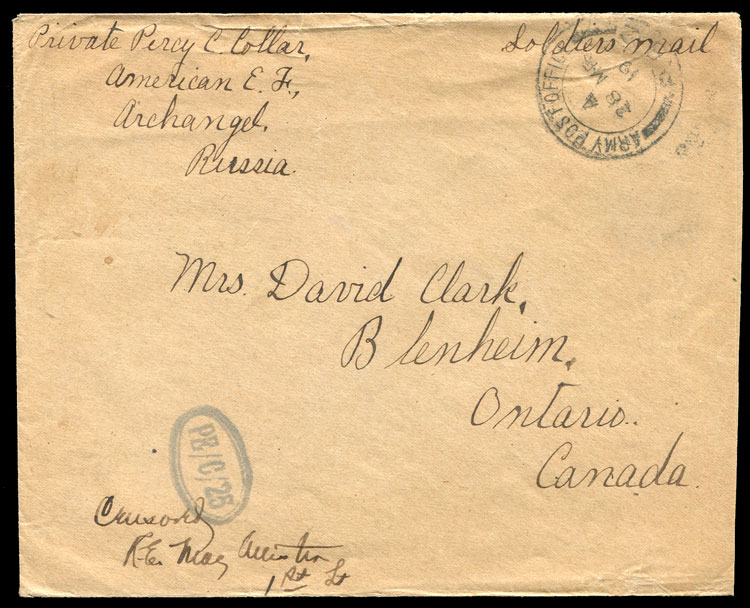 Private Percy C. Collar,
Soldiers mail
American E. F.,
Archangel,
Russia.
ARMY POST OFFICE
4
28
MR
19
Mrs. David Clark,
Blenheim,
Ontario.
Canada.
PB/C/25
Censored
R.E.
1st Lt